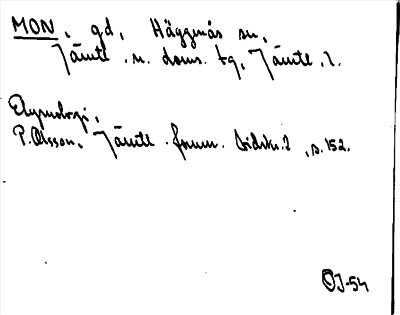 MON, gd, Häggenås sn,
Jämtl. n. doms. tg, Jämtl. l.
Etymologi,
P. Olsson, Jämtl. fornm. tidskr. 2, s. 152.
OJ-54